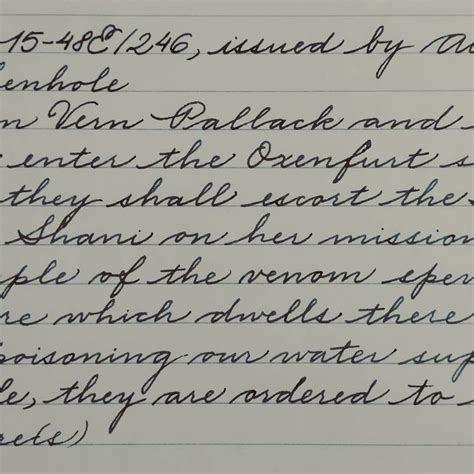 15-48E/246, issued by
enhole
n Vern Pallack and
enter the Oxenfurt s
they shall escort the
Shani on her mission
ple of the venom sper
re which dwells there
poisoning our water sup
le, they are ordered to
re(s)